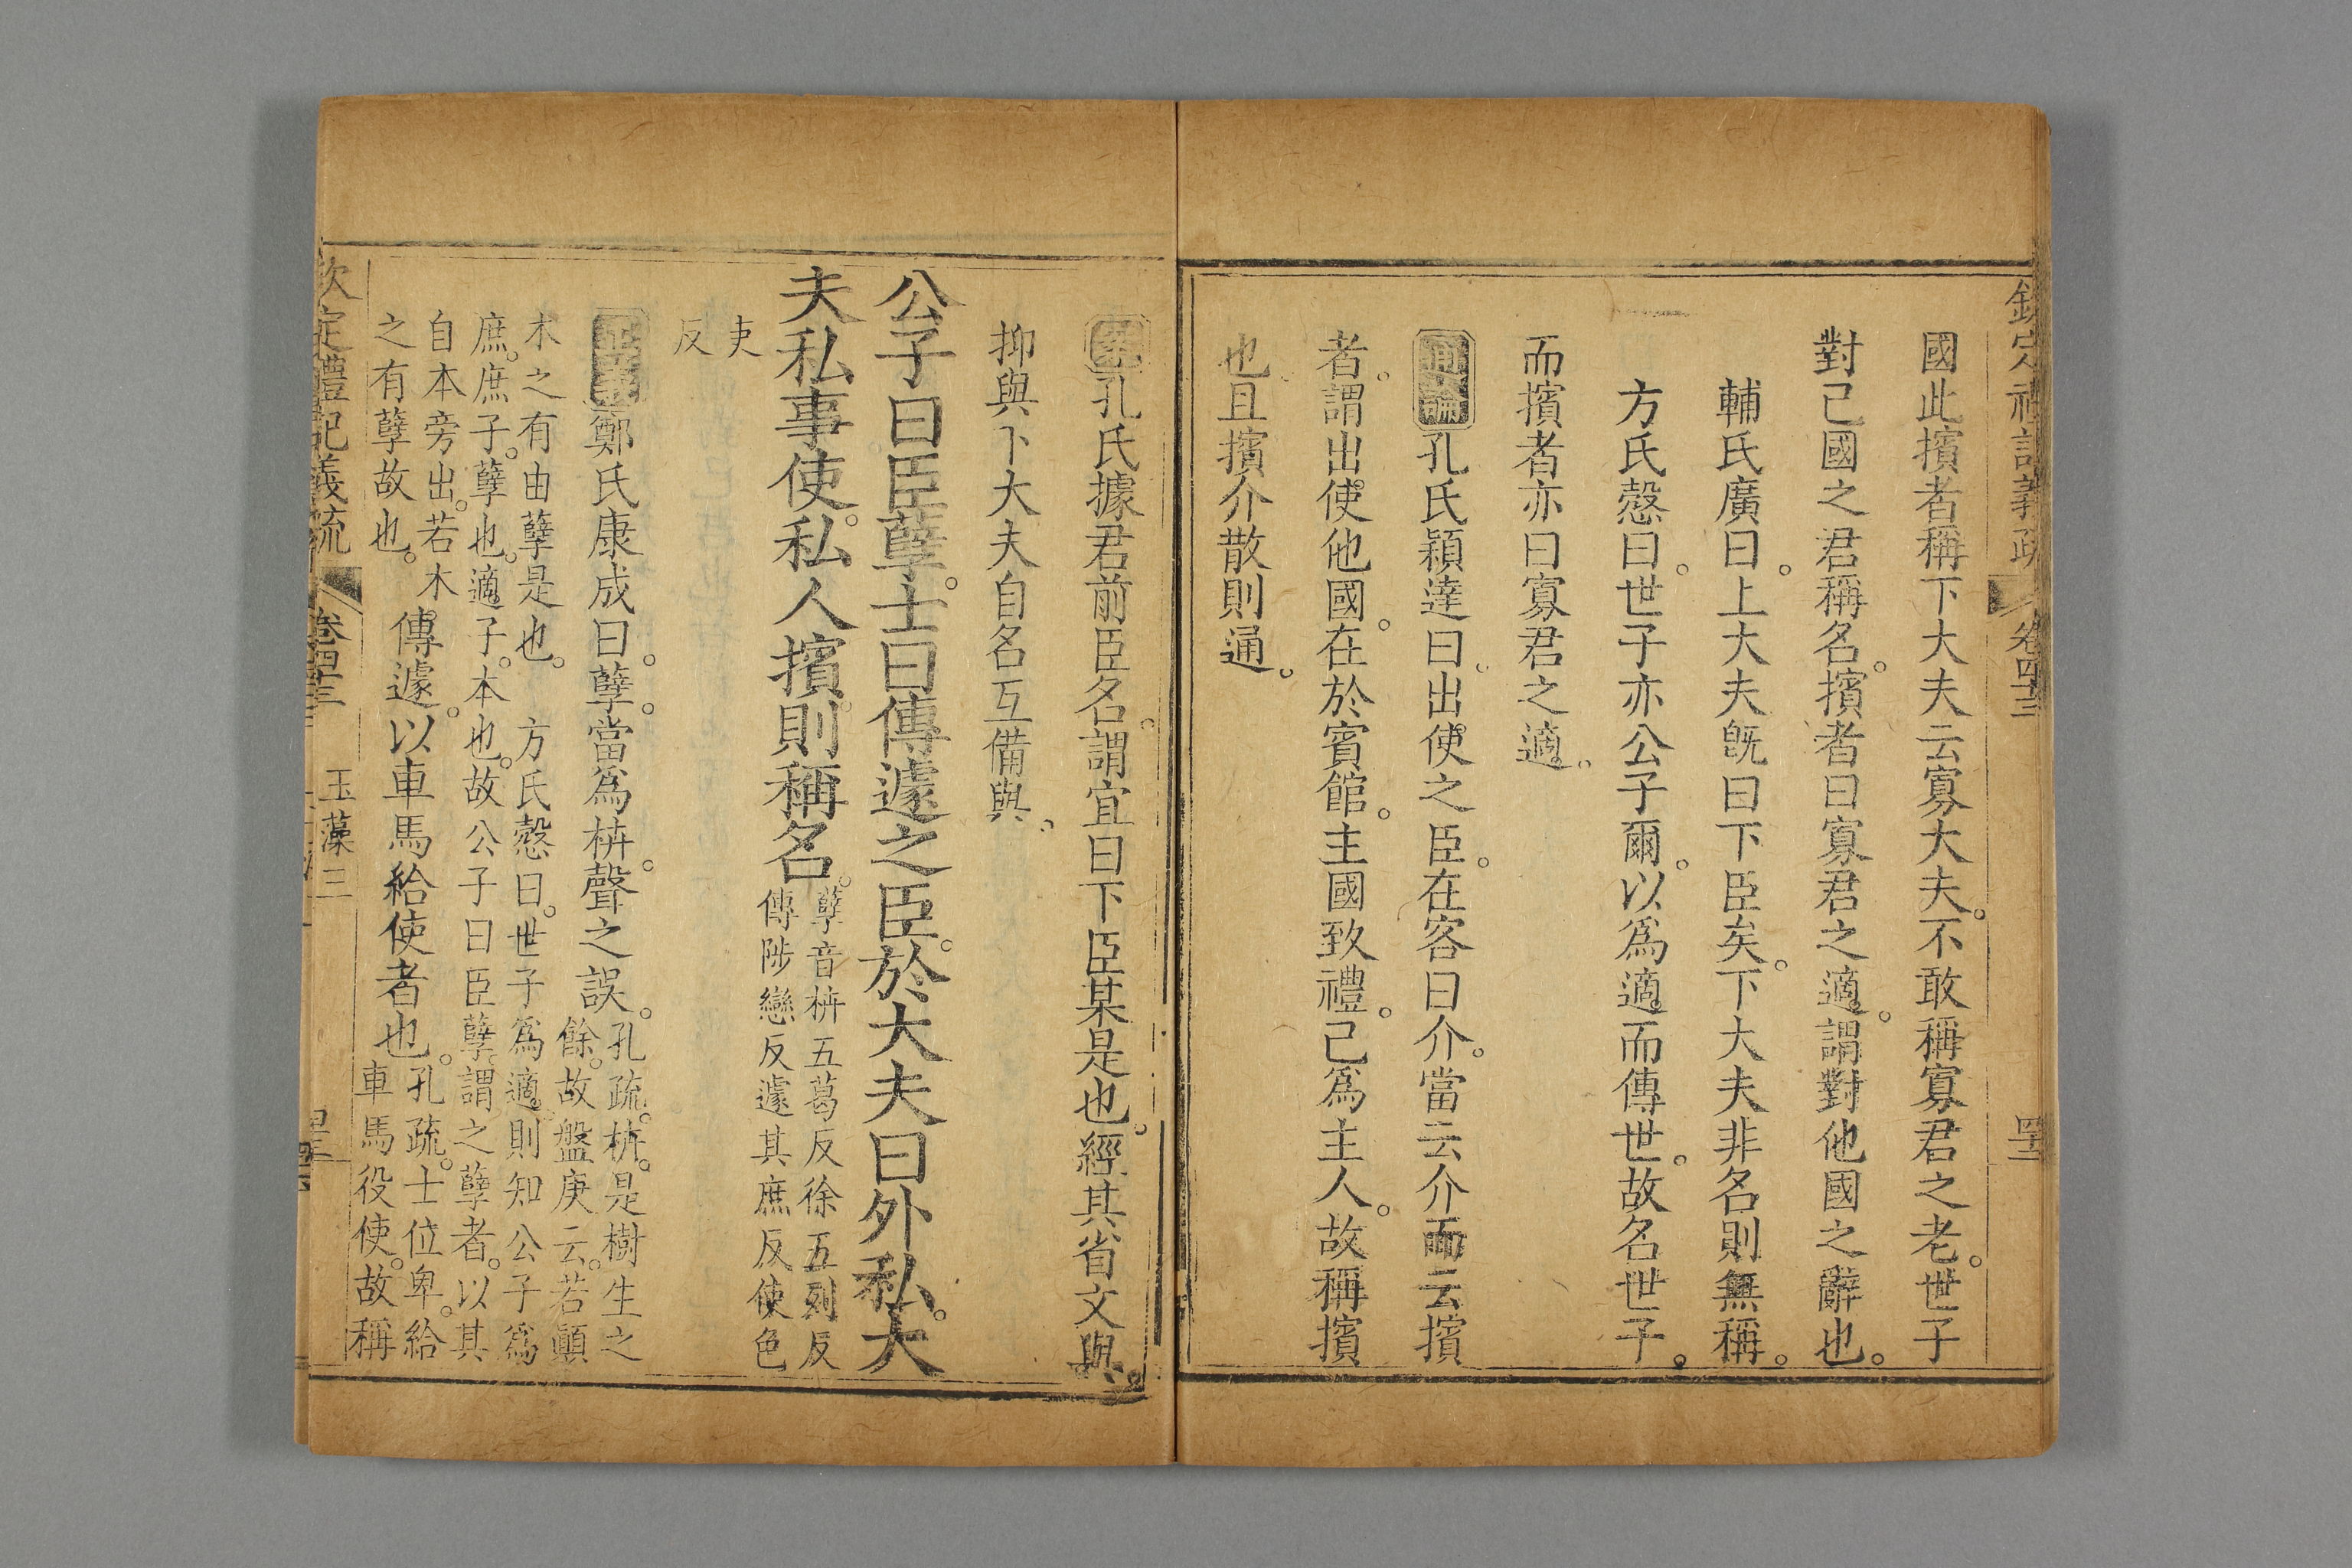 欽定禮記義疏 卷四十三
國此擯者稱下大夫云寡大夫不敢稱寡君之老世子
對己國之君稱名擯者曰寡君之適謂對他國之辭也
輔氏廣曰上大夫旣曰下臣矣下大夫非名則無稱
方氏慤曰世子亦公子爾以爲適而傳世故名世子
而擯者亦曰寡君之適
通論孔氏穎達曰出使之臣在客曰介當云介而云擯
者謂出使他國在於賓館主國致禮己爲主人故稱擯
也且擯介散則通
案孔氏據君前臣名謂宜曰下臣某是也經其省文與
抑與下大夫自名互備與
公子曰臣孼士曰傳遽之臣於大夫曰外私大
夫私事使私人擯則稱名
孼音枿五葛反徐五列反
傳陟戀反遽其庶反使色
吏
反
正義鄭氏康成曰孼當爲枿聲之誤
孔疏枿是樹生之
餘故盤庚云若顚
木之有由孼是也 方氏慤曰世子爲適則知公子爲
庶庶子孼也適子本也故公子曰臣孼謂之孼者以其
自本旁出若木
之有孼故也
傳遽以車馬給使者也
孔疏士位卑給
車馬役使故稱
欽定禮記義疏 卷四十三 玉藻三